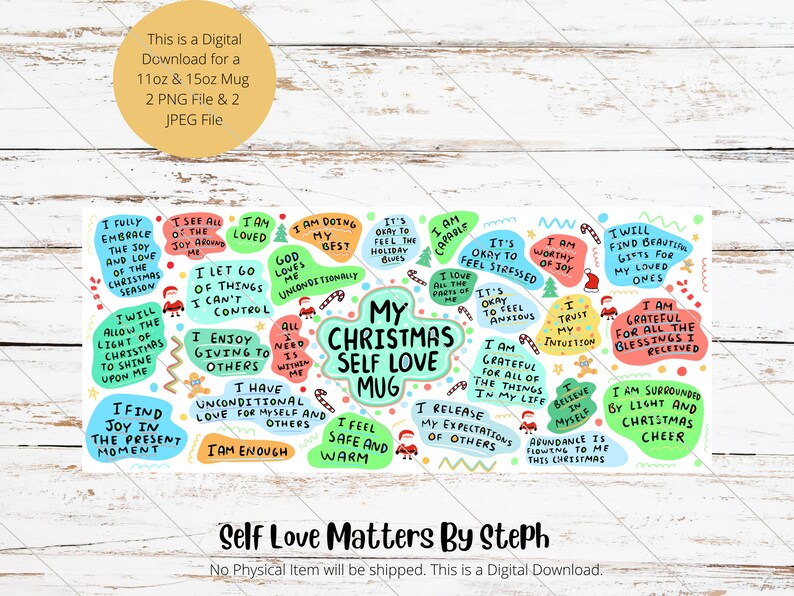 This is a Digital
Download for a
11oz & 15oz Mug
2 PNG File & 2
JPEG File
I FULLY
EMBRACE
THE JOY
AND LOVE
OF THE
CHRISTMAS
SEASON
I SEE ALL
OF THE
JOY AROUND
ME
I AM
LOVED
I AM DOING
MY
BEST
IT'S
OKAY TO
FEEL THE
HOLIDAY
BLUES
I AM
CAPABLE
IT'S
OKAY TO
FEEL STRESSED
I AM
WORTHY
OF JOY
I WILL
FIND BEAUTIFUL
GIFTS FOR
MY LOVED
ONES
I LET GO
OF THINGS
I CAN'T
CONTROL
GOD
LOVES
ME
UNCONDITIONALLY
I LOVE
ALL THE
PARTS OF
ME
IT'S
OKAY
TO FEEL
ANXIOUS
I
TRUST
MY
INTUITION
I AM
GRATEFUL
FOR ALL THE
BLESSINGS I
RECEIVED
I WILL
ALLOW THE
LIGHT OF
CHRISTMAS
TO SHINE
UPON ME
I ENJOY
GIVING TO
OTHERS
ALL
I
NEED
IS
WITHIN
ME
MY
CHRISTMAS
SELF LOVE
MUG
I AM
GRATEFUL
FOR ALL OF
THE THINGS
IN MY LIFE
I
BELIEVE
IN
MYSELF
I AM SURROUNDED
BY LIGHT AND
CHRISTMAS
CHEER
I FIND
JOY IN
THE PRESENT
MOMENT
I HAVE
UNCONDITIONAL
LOVE FOR MYSELF AND
OTHERS
I AM ENOUGH
I FEEL
SAFE AND
WARM
I RELEASE
MY EXPECTATIONS
OF OTHERS
ABUNDANCE IS
FLOWING TO ME
THIS CHRISTMAS
Self Love Matters By Steph
No Physical Item will be shipped. This is a Digital Download.